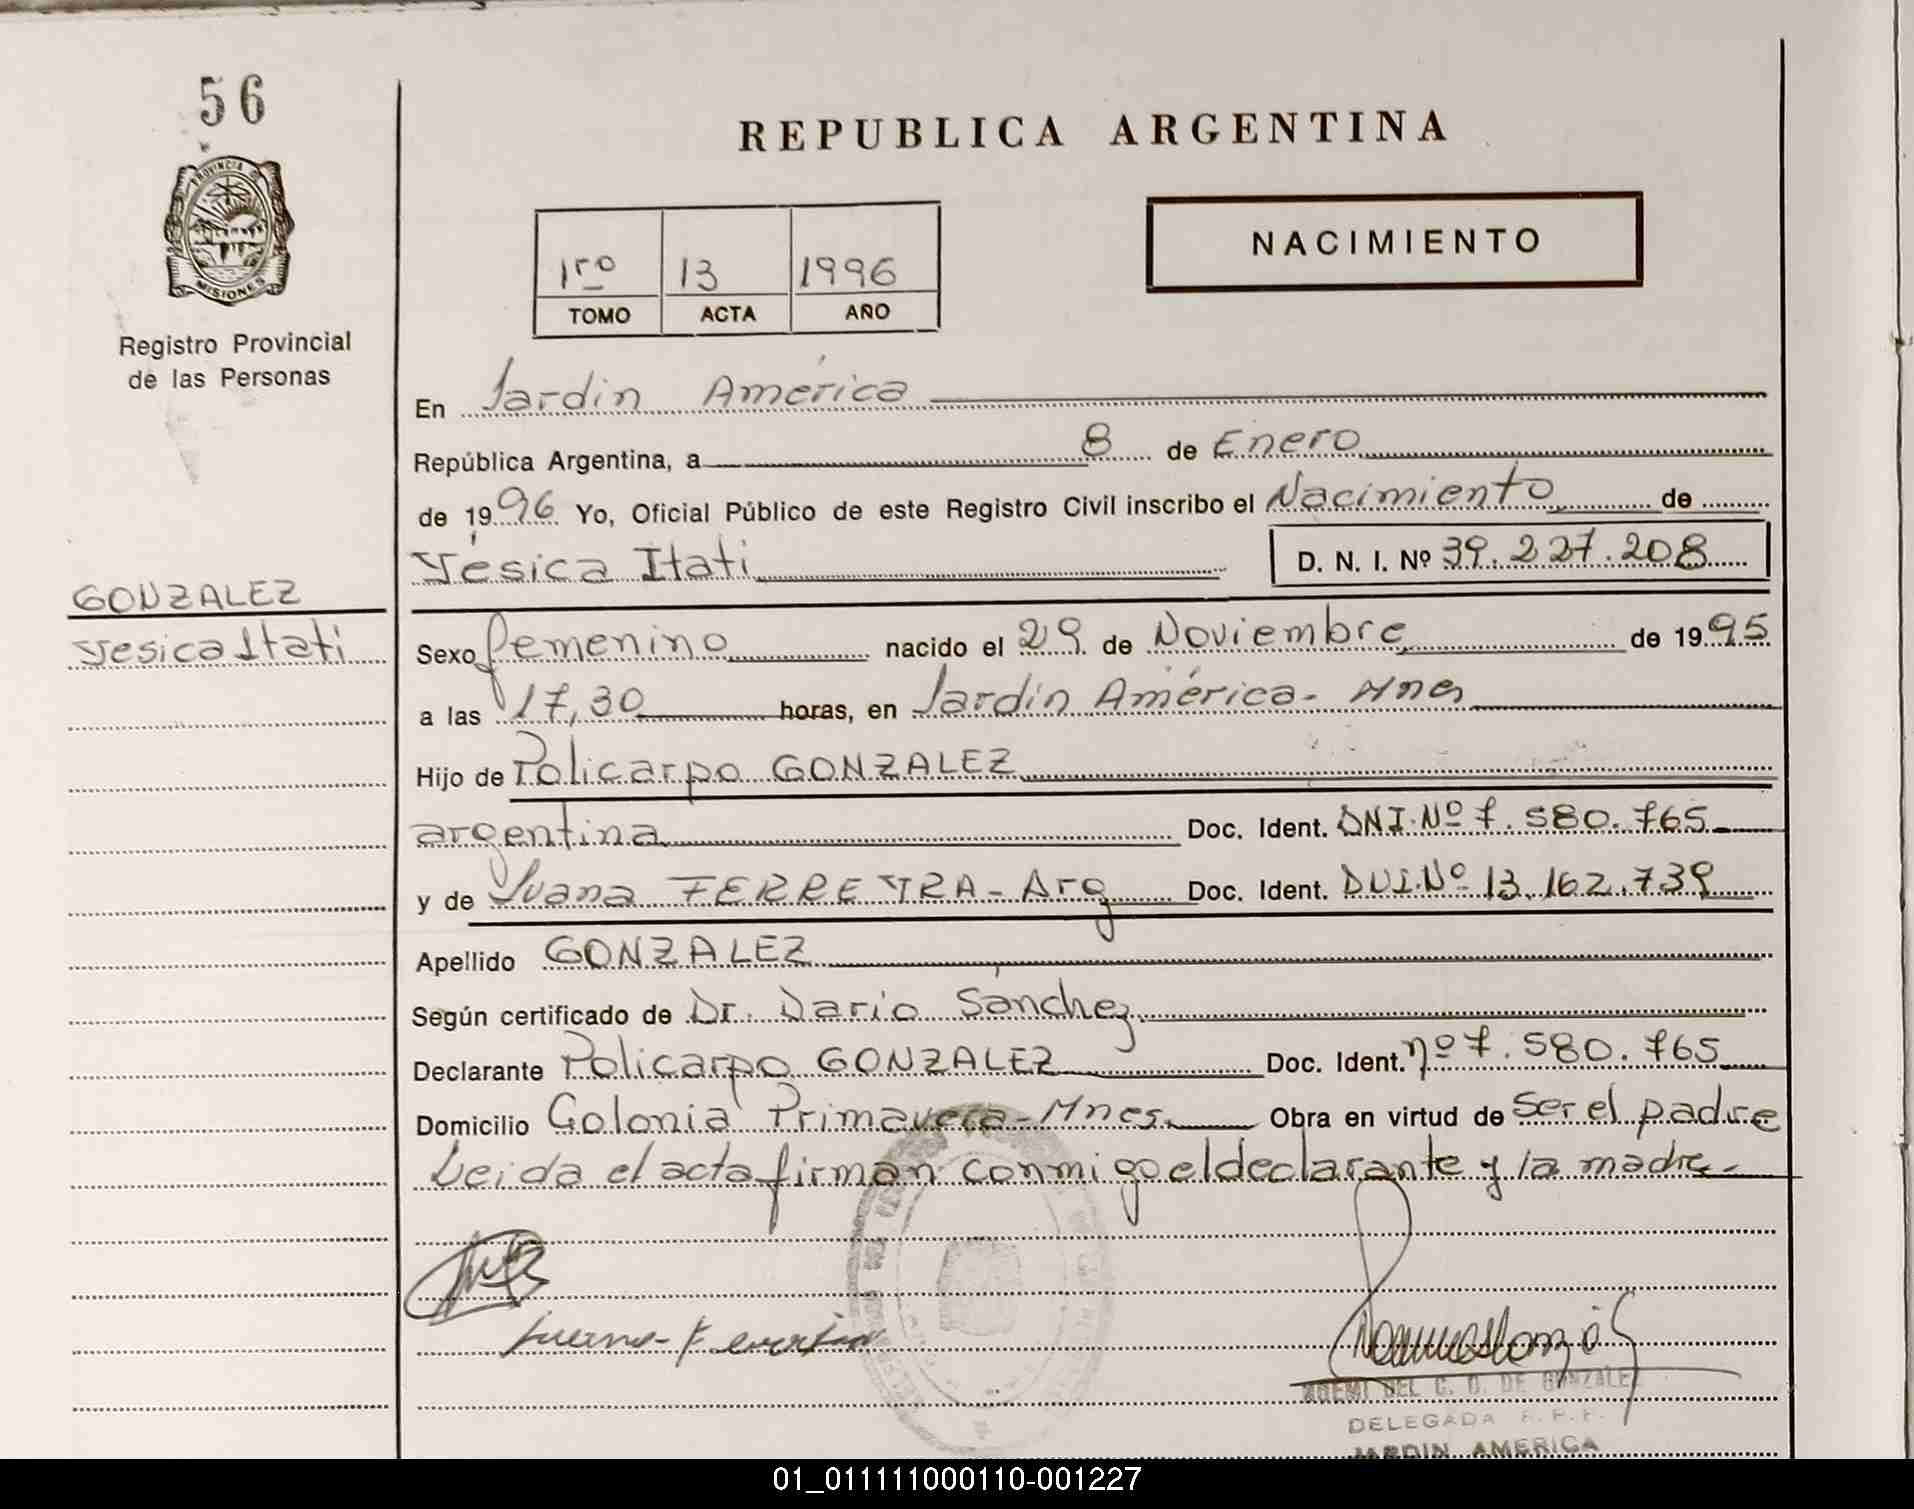 56
PROVINCIA DE
MISIONES
Registro Provincial
de las Personas
REPUBLICA ARGENTINA
1ro 13 1996
TOMO ACTA AÑO
NACIMIENTO
En Jardín América
República Argentina, a 8 de Enero
de 1996 Yo, Oficial Público de este Registro Civil inscribo el Nacimiento de
Yésica Itati D. N. I. Nº 39.227.208
GONZALEZ
Yesica Itati
Sexo femenino nacido el 29 de Noviembre de 1995
a las 17,30 horas, en Jardín América - Mnes
Hijo de Policarpo GONZALEZ
argentina Doc. Ident. DNI.Nº 7.580.765
y de Juana FERREYRA - Arg Doc. Ident. DUI.Nº 13.162.739
Apellido GONZALEZ
Según certificado de Dr. Dario Sánchez
Declarante Policarpo GONZALEZ Doc. Ident. nº 7.580.765
Domicilio Colonia Primavera - Mnes. Obra en virtud de ser el padre
Leida el acta firman conmigo el declarante y la madre -
NOEMI DEL C. O. DE GONZALEZ
DELEGADA
JARDIN AMERICA
01_011111000110-001227